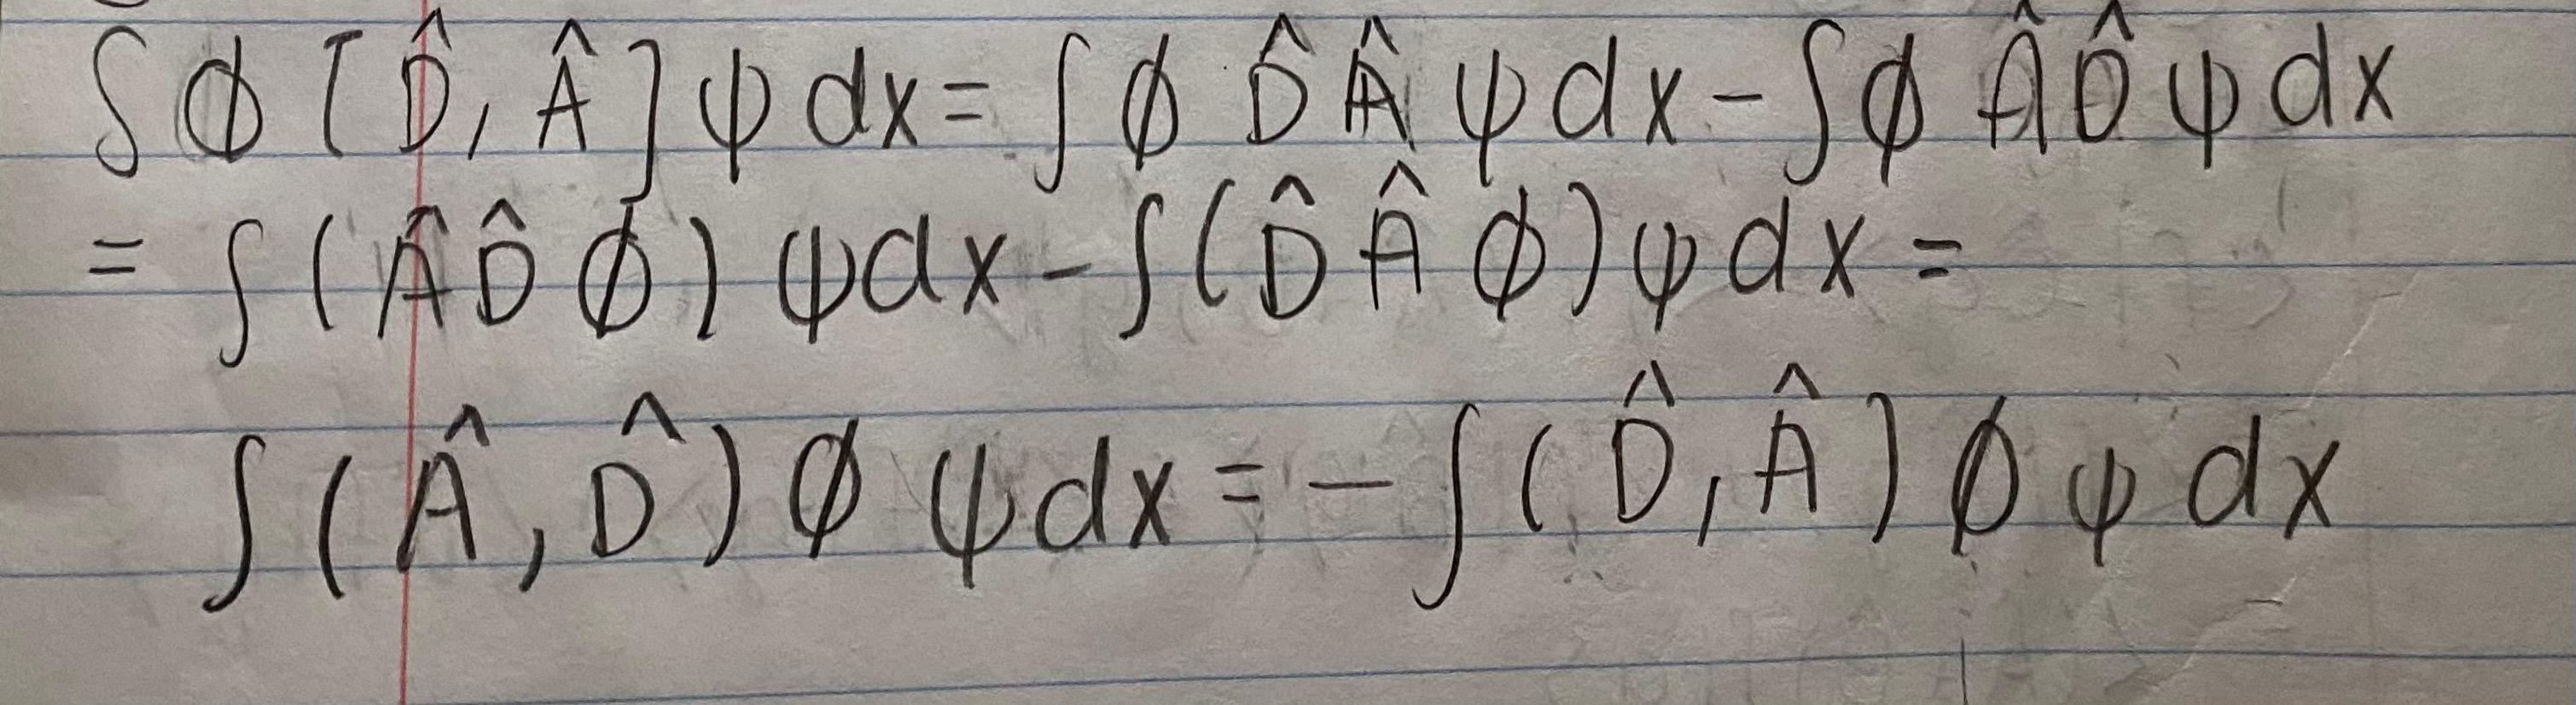 ∫ ϕ [D̂, Â] ψ dx = ∫ ϕ D̂ Â ψ dx − ∫ ϕ Â D̂ ψ dx
= ∫ (Â D̂ ϕ) ψ dx − ∫ (D̂ Â ϕ) ψ dx =
∫ (Â, D̂) ϕ ψ dx = − ∫ (D̂, Â) ϕ ψ dx